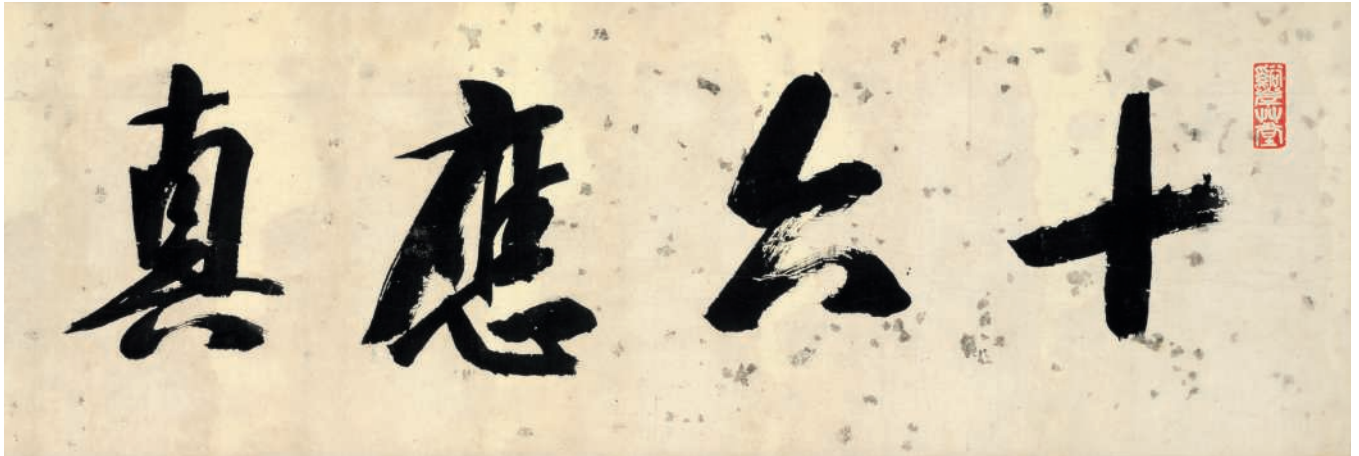 十六應真